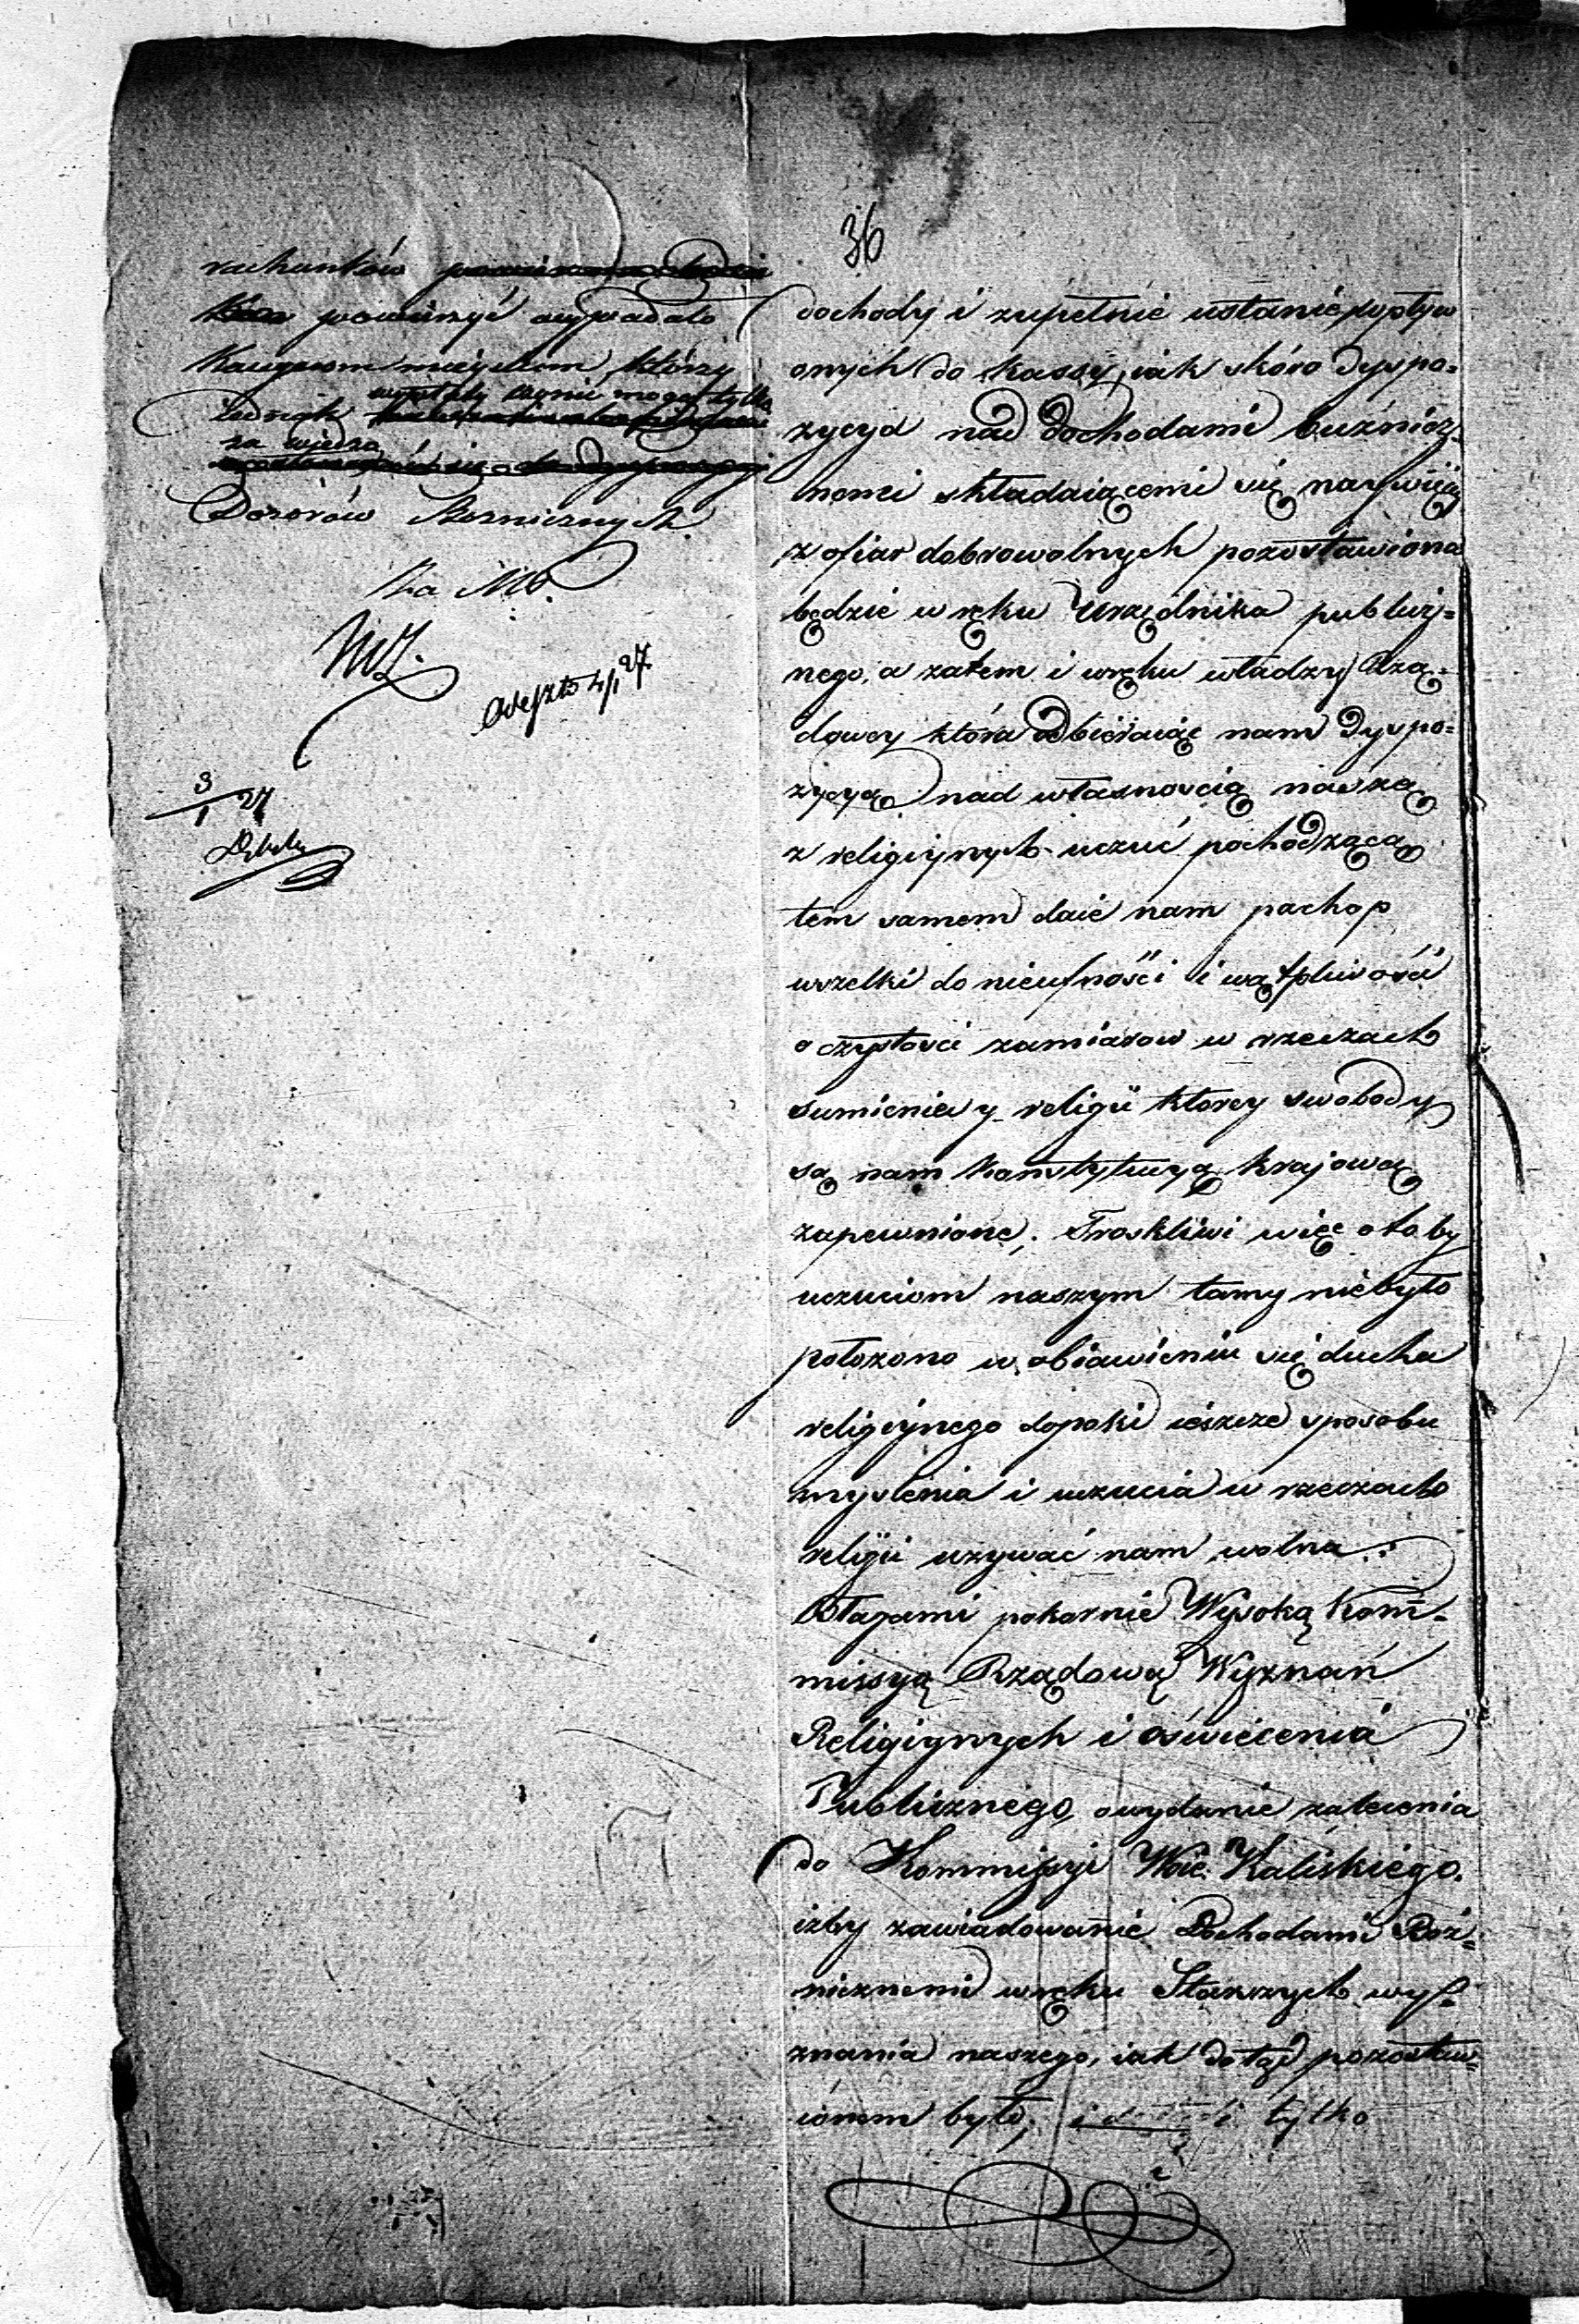 36
rachunków
powierzyć wypadało
Kassyerom mieyskim, którzy
wypłaty czynić mogą tylko
jednak
za wiedzą
Dozorów Bozniczych.
Za Mb.
3/1 27
Odeszło 4/1 27.
dochody i zupełnie ustanie wpływ
onych do kassy, iak skóro dyspo=
zycya nad dochodami buźnicz=
nemi składaiącemi się naywięcéy
z ofiar dobrowolnych pozostawiona
będzie w ręku Urzędnika publicz=
nego, a zatem i w ręku władzy Rzą=
dowey która odbieraiąc nam dyspo=
zycyą nad własnoscią naszą
z religiynych uczuć pochodzącą
tem samem daie nam pochop
wszelki do nieufności i wątpliwości
o czystosci zamiarow w rzeczach
sumienia y religii ktorey swobody
są nam konstytucyą krajową
zapewnione; Troskliwi więc o to by
uczuciom naszym tamy niebyło
położono w obiawieniu się ducha
religiynego dopoki ieszcze sposobu
myslenia i uczucia w rzeczach
religii używać nam wolno:
Błagami pokornie Wysoką Kom̃=
missyą Rządową Wyznań
Religiynych i oświecenia
Publicznego, o wydanie zalecenia
do Kommissyi Woie. Kaliskiego.
izby zawiadowanie Dochodami Boż=
nicznemi w ręku Starszych wy=
znania naszego, iak dotąd pozostaw=
ionem było, i tylko